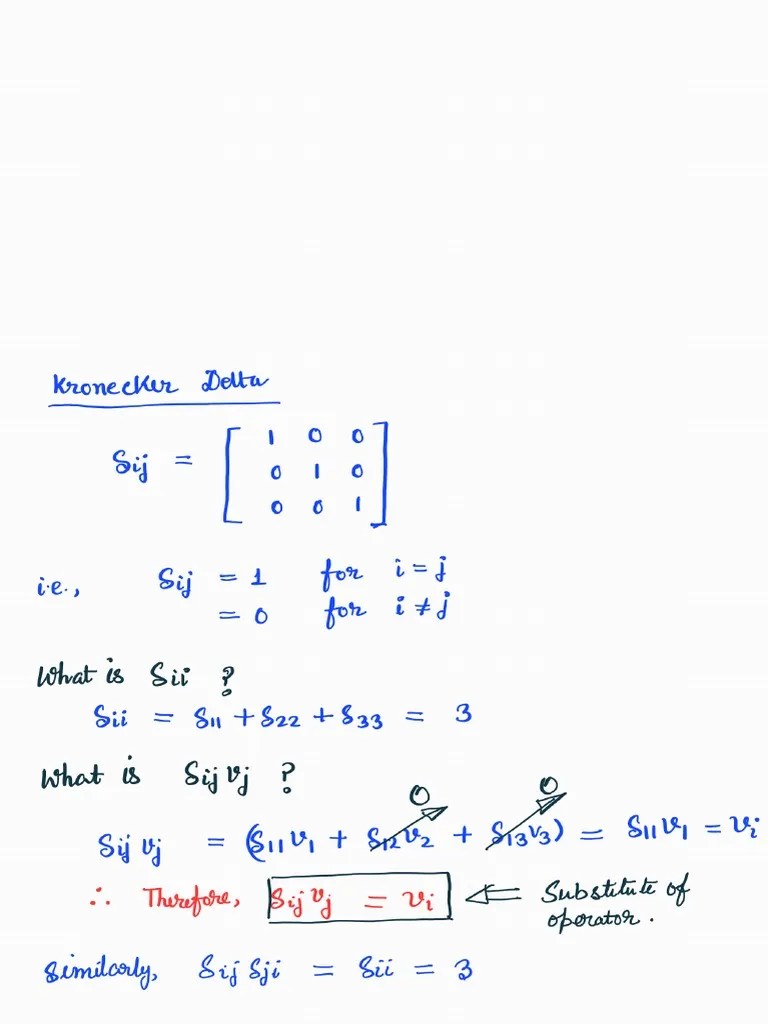 Kronecker Delta
δij = [ 1 0 0
0 1 0
0 0 1 ]
i.e., δij = 1 for i = j
= 0 for i ≠ j
What is δii ?
δii = δ11 + δ22 + δ33 = 3
What is δij vj ?
0 0
δij vj = (δ11 v1 + δ12 v2 + δ13 v3) = δ11 v1 = vi
∴ Therefore, δij vj = vi ⇐ Substitute of
operator.
Similarly, δij δji = δii = 3